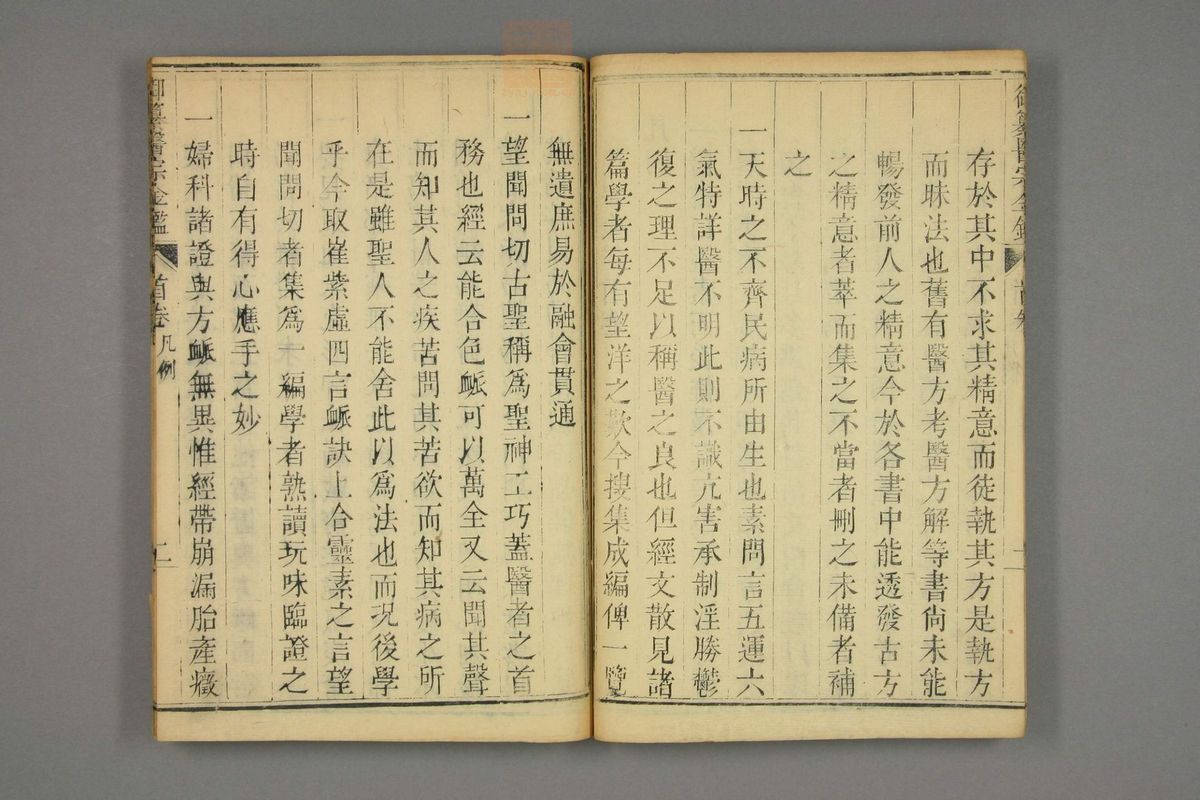 存於其中不求其精意而徒執其方是執方
而昧法也舊有醫方考醫方解等書尙未能
暢發前人之精意今於各書中能透發古方
之精意者萃而集之不當者刪之未備者補
之
一天時之不齊民病所由生也素問言五運六
氣特詳醫不明此則不識亢害承制淫勝鬱
復之理不足以稱醫之良也但經文散見諸
篇學者每有望洋之歎今搜集成編俾一覽
無遺庶易於融會貫通
一望聞問切古聖稱爲聖神工巧蓋醫者之首
務也經云能合色衇可以萬全又云聞其聲
而知其人之疾苦問其苦欲而知其病之所
在是雖聖人不能舍此以爲法也而况後學
乎今取崔紫虛四言衇訣上合靈素之言望
聞問切者集爲一編學者熟讀玩味臨證之
時自有得心應手之妙
一婦科諸證與方衇無異惟經帶崩漏胎產癥
御纂醫宗金鑑
首卷 凡例
二